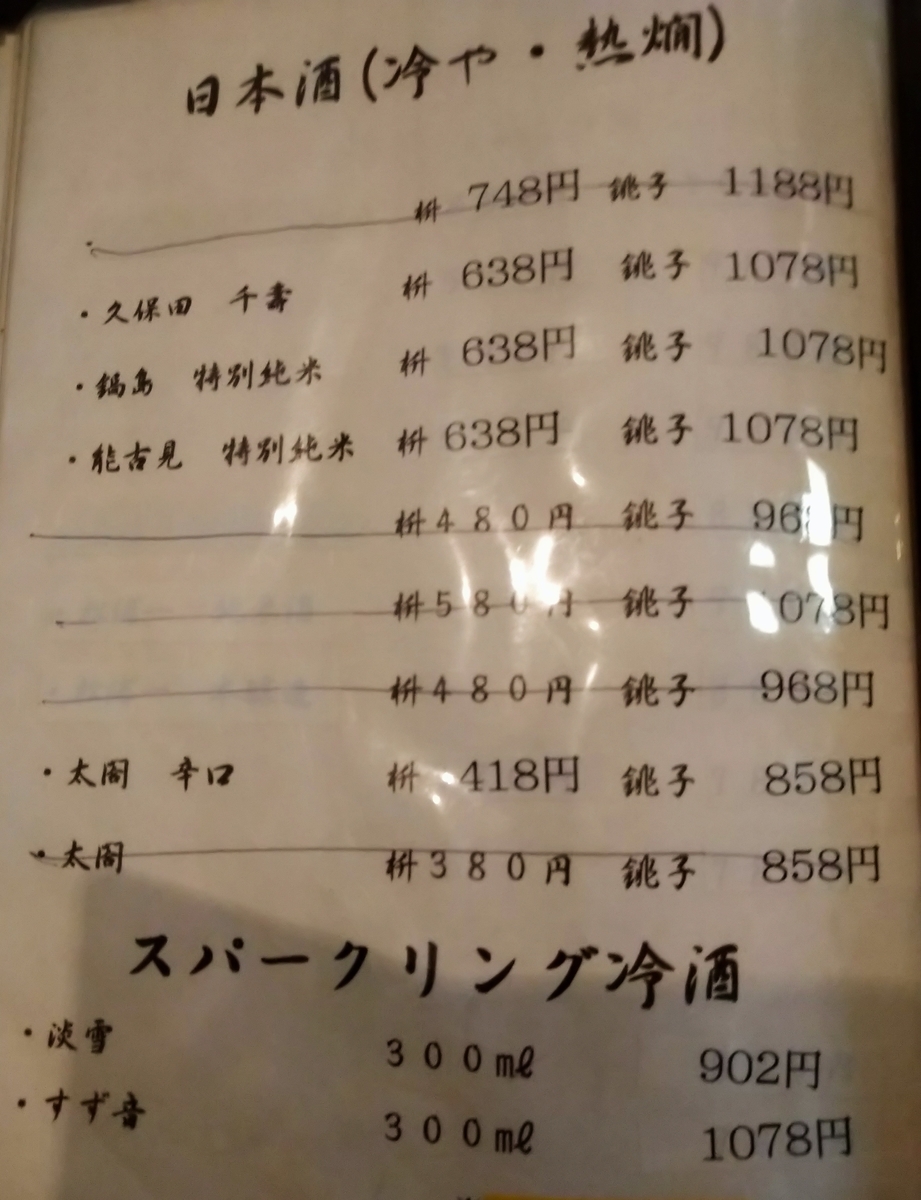 日本酒(冷や・熱燗)
枡 748円 銚子 1188円
・久保田 千壽 枡 638円 銚子 1078円
・鍋島 特別純米 枡 638円 銚子 1078円
・能古見 特別純米 枡 638円 銚子 1078円
枡480円 銚子 968円
枡580円 銚子 1078円
枡480円 銚子 968円
・太閤 辛口 枡 418円 銚子 858円
・太閤 枡380円 銚子 858円
スパークリング冷酒
・淡雪 300㎖ 902円
・すず音 300㎖ 1078円